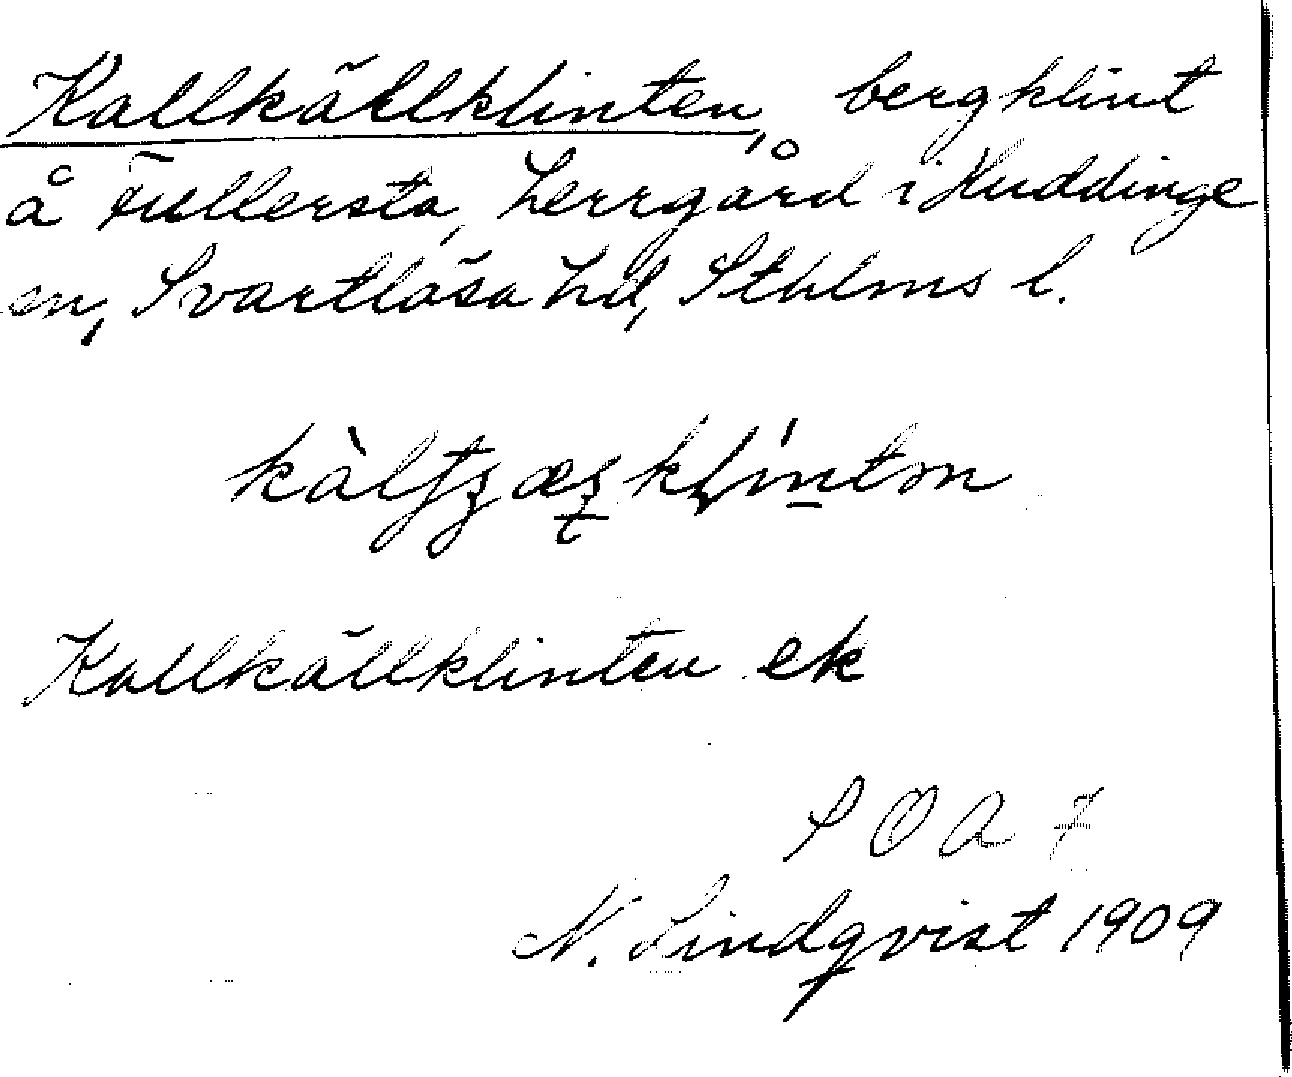 Kallkällklinten, bergklint
å Fullersta, herrgård i Huddinge
sn, Svartlösa hd, Sthlms l.
Kallkällklinten ek
SOA 7
N. Lindqvist 1909